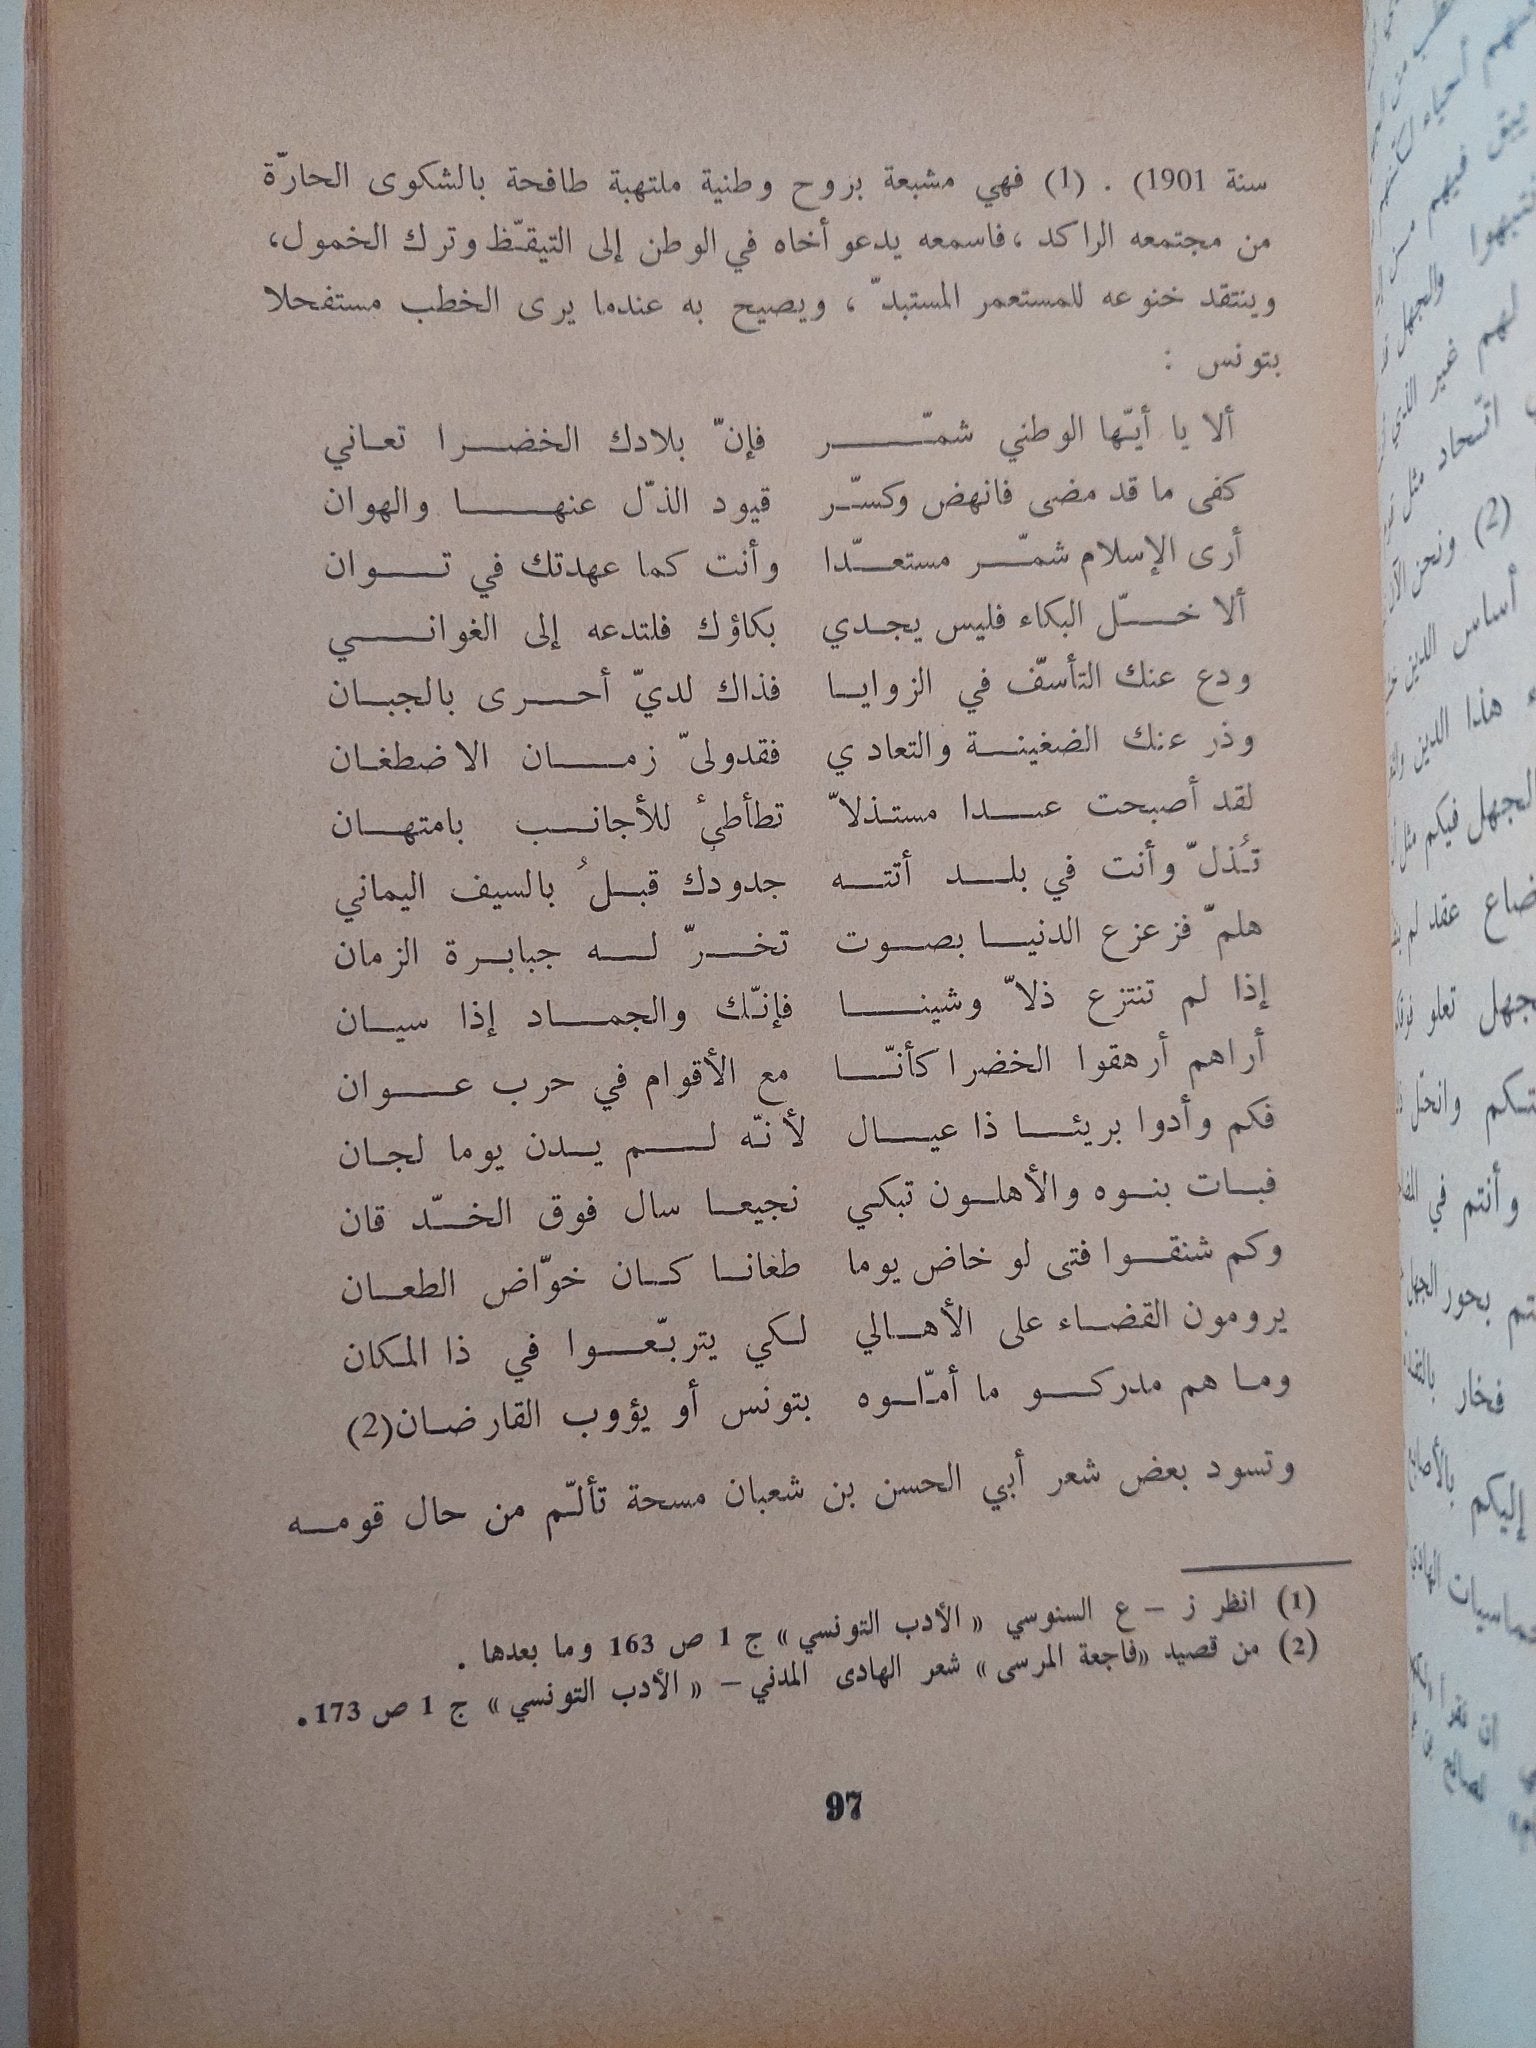 سنة 1901) . (1) فهي مشبعة بروح وطنية ملتهبة طافحة بالشكوى الحارّة
من مجتمعه الراكد ، فاسمعه يدعو أخاه في الوطن إلى التيقّظ وترك الخمول،
وينتقد خنوعه للمستعمر المستبدّ ، ويصيح به عندما يرى الخطب مستفحلا
بتونس :
ألا يا أيّها الوطني شمّر فإنّ بلادك الخضرا تعاني
كفى ما قد مضى فانهض وكسّر قيود الذلّ عنها والهوان
أرى الإسلام شمّر مستعدّا وأنت كما عهدتك في توان
ألا خلّ البكاء فليس يجدي بكاؤك فلتدعه إلى الغواني
ودع عنك التأسّف في الزوايا فذاك لديّ أحرى بالجبان
وذر عنك الضغينة والتعادي فقدولىّ زمان الاضطغان
لقد أصبحت عبدا مستذلاّ تطأطئ للأجانب بامتهان
تُذلّ وأنت في بلد أتته جدودك قبلُ بالسيف اليماني
هلمّ فزعزع الدنيا بصوت تخرّ له جبابرة الزمان
إذا لم تنتزع ذلاّ وشينا فإنّك والجماد إذا سيان
أراهم أرهقوا الخضرا كأنّا مع الأقوام في حرب عوان
فكم وأدوا بريئا ذا عيال لأنّه لم يدن يوما لجان
فبات بنوه والأهلون تبكي نجيعا سال فوق الخدّ قان
وكم شنقوا فتى لو خاض يوما طغانا كان خوّاض الطعان
يرومون القضاء على الأهالي لكي يتربّعوا في ذا المكان
وما هم مدركو ما أمّلوه بتونس أو يؤوب القارضان(2)
وتسود بعض شعر أبي الحسن بن شعبان مسحة تألّم من حال قومه
(1) انظر ز – ع السنوسي « الأدب التونسي » ج 1 ص 163 وما بعدها .
(2) من قصيد «فاجعة المرسى » شعر الهادى المدني – « الأدب التونسي » ج 1 ص 173.
97